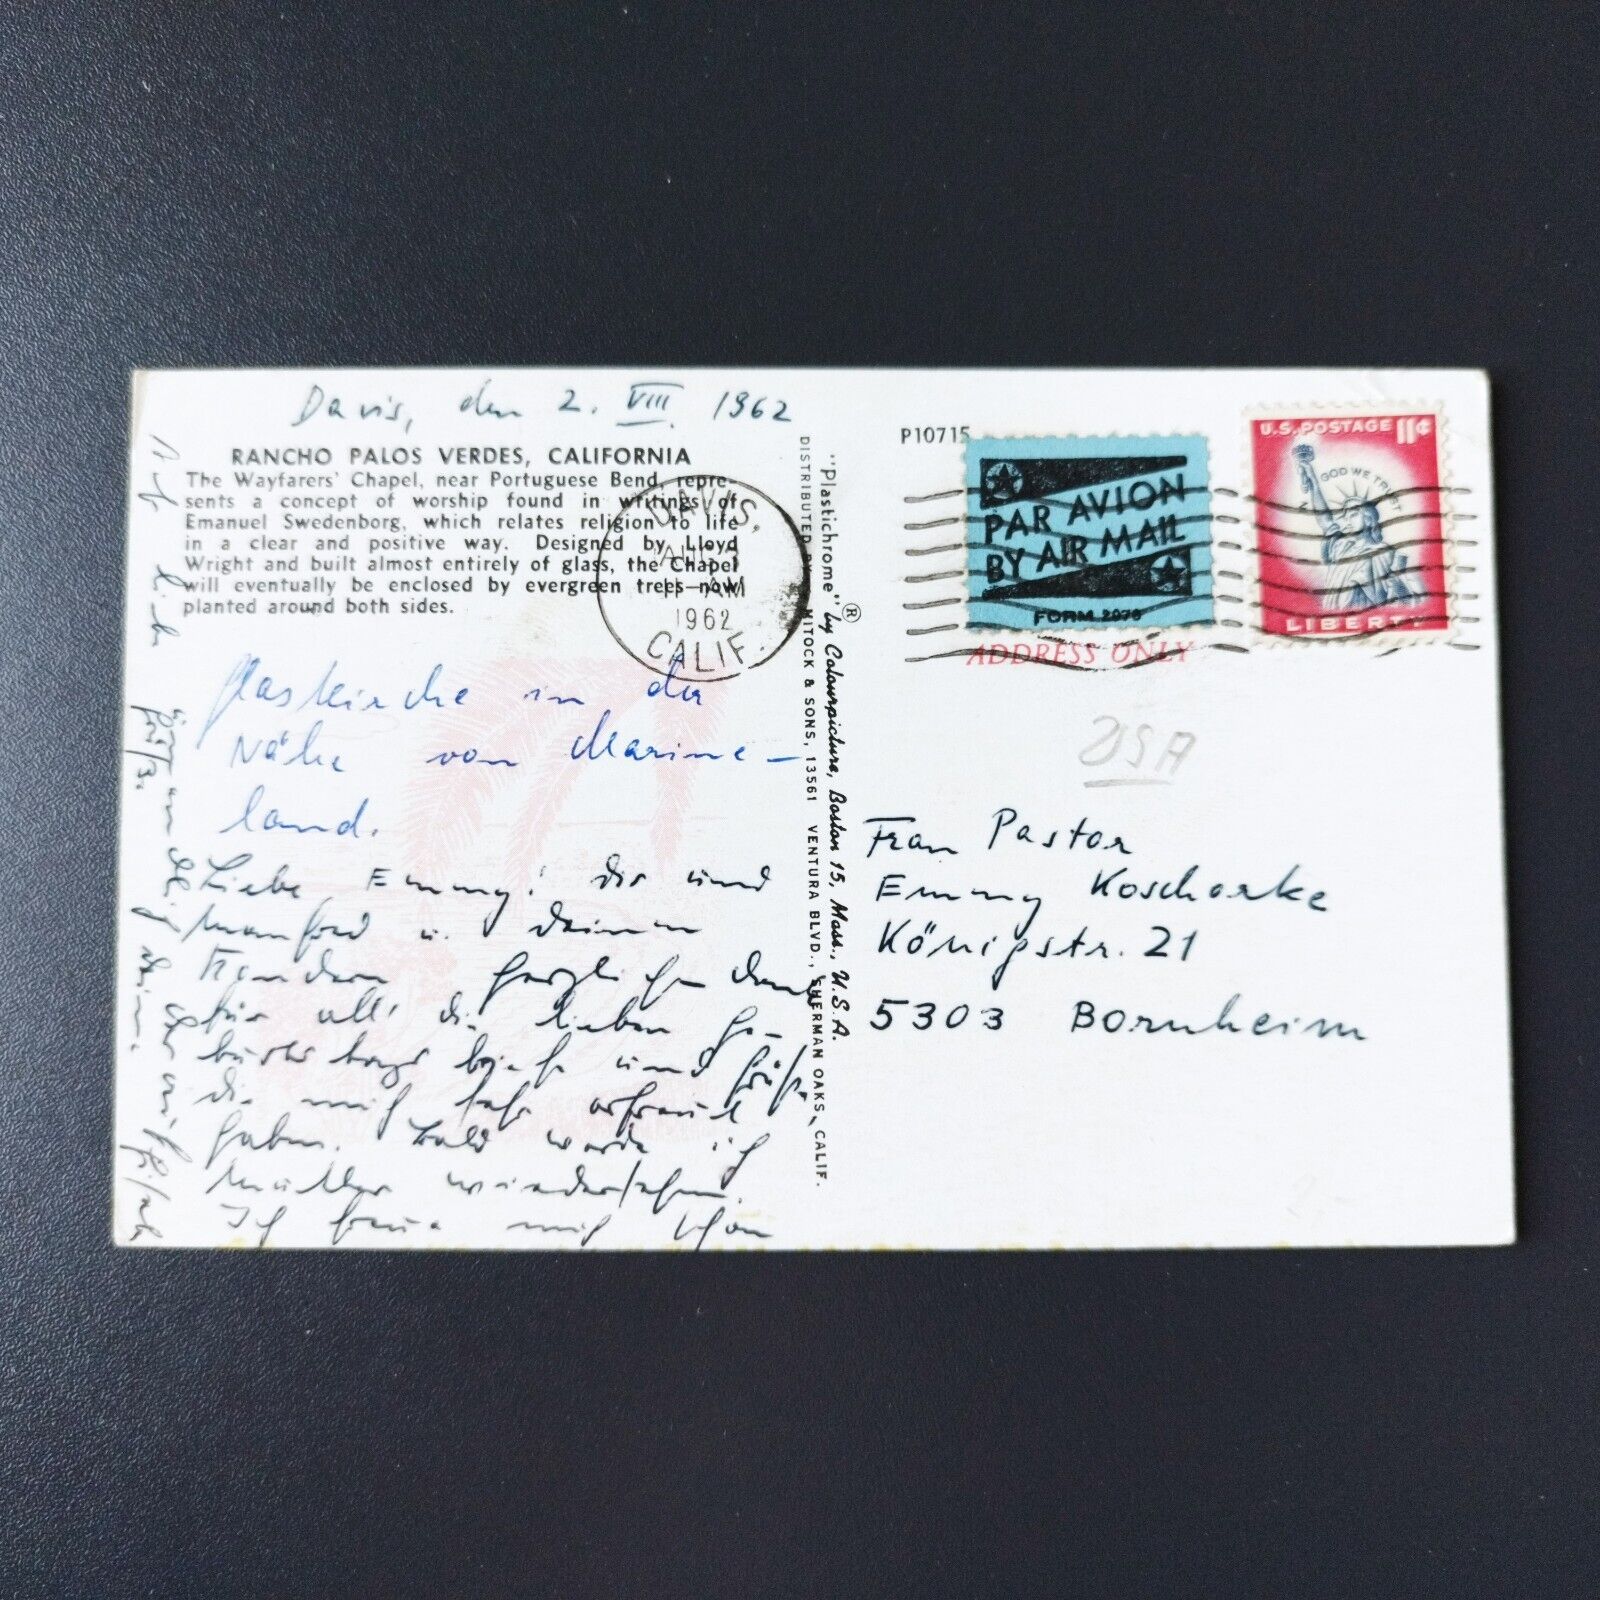 Davis, den 2. VIII. 1962
RANCHO PALOS VERDES, CALIFORNIA
The Wayfarers' Chapel, near Portuguese Bend, repre-
sents a concept of worship found in writings of
Emanuel Swedenborg, which relates religion to life
in a clear and positive way. Designed by Lloyd
Wright and built almost entirely of glass, the Chapel
will eventually be enclosed by evergreen trees now
planted around both sides.
DAVIS,
AUG
AM
1962
CALIF.
Glaskirche in der
Nähe von Marine-
land.
Liebe Emmy! Dir und
Manfred u. Deinen
Kindern herzlichen Dank
für all' die lieben Ge-
burtstags briefe und Grüße,
die mich sehr erfreut
haben. Bald werde ich
Mutter wiedersehen.
Ich freue mich schon
"Plastichrome"® by Colourpicture, Boston 15, Mass., U.S.A.
DISTRIBUTED BY MITOCK & SONS, 13561 VENTURA BLVD., SHERMAN OAKS, CALIF.
P10715
PAR AVION
BY AIR MAIL
FORM 2076
U.S. POSTAGE 11¢
IN GOD WE TRUST
LIBERTY
ADDRESS ONLY
USA
Frau Pastor
Emmy Koschorke
Königstr. 21
5303 Bornheim